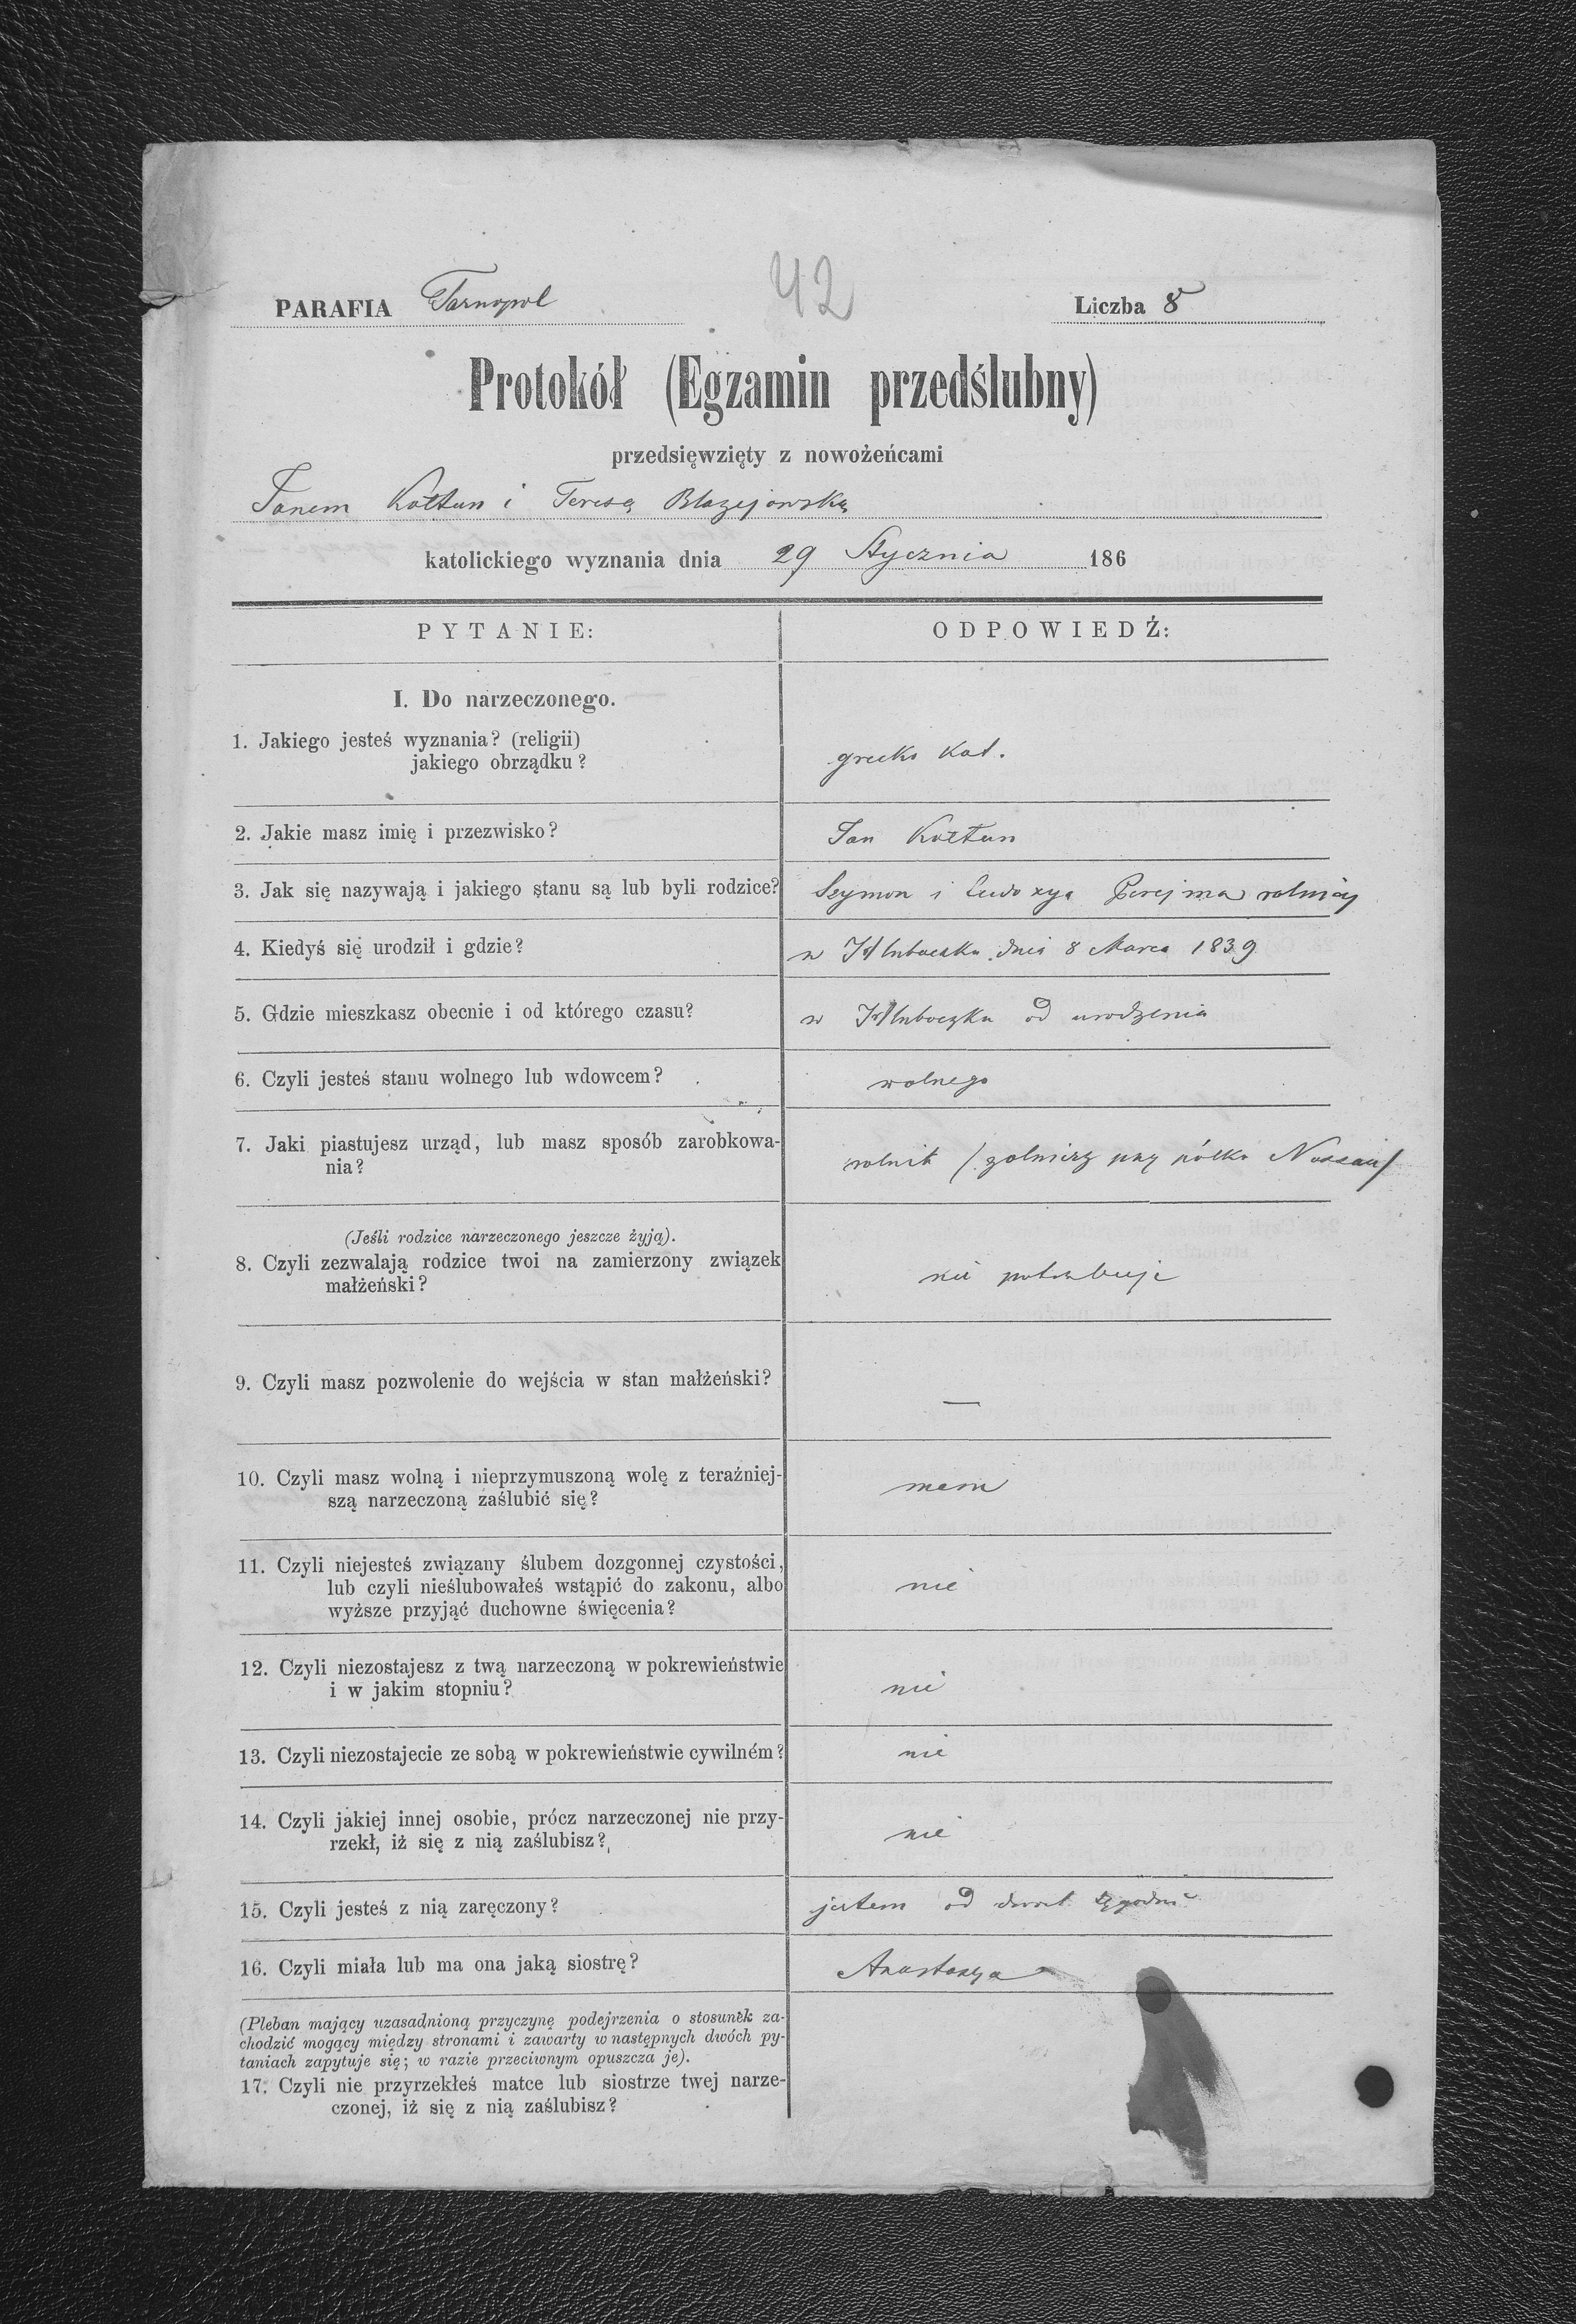 PARAFIA Tarnopol
42
Liczba 8
Protokół (Egzamin przedślubny)
przedsięwzięty z nowożeńcami
Janem Kołtun i Teresą Błazejowską
katolickiego wyznania dnia 29 Stycznia 186
PYTANIE:
ODPOWIEDŹ:
I. Do narzeczonego.
1. Jakiego jesteś wyznania? (religii)
jakiego obrządku?
grecko kat.
2. Jakie masz imię i przezwisko?
Jan Kołtun
3. Jak się nazywają i jakiego stanu są lub byli rodzice?
Szymon i Eudoxya Perejma rolnicy
4. Kiedyś się urodził i gdzie?
w Hłuboczku dnia 8 Marca 1839
5. Gdzie mieszkasz obecnie i od którego czasu?
w Hłuboczku od urodzenia
6. Czyli jesteś stanu wolnego lub wdowcem?
wolnego
7. Jaki piastujesz urząd, lub masz sposób zarobkowa-
nia?
rolnik / zolnierz przy półku Nassau/
(Jeśli rodzice narzeczonego jeszcze żyją).
8. Czyli zezwalają rodzice twoi na zamierzony związek
małżeński?
nie potrzebuje
9. Czyli masz pozwolenie do wejścia w stan małżeński?
—
10. Czyli masz wolną i nieprzymuszoną wolę z teraźniej-
szą narzeczoną zaślubić się?
mam
11. Czyli niejesteś związany ślubem dozgonnej czystości,
lub czyli nieślubowałeś wstąpić do zakonu, albo
wyższe przyjąć duchowne święcenia?
nie
12. Czyli niezostajesz z twą narzeczoną w pokrewieństwie
i w jakim stopniu?
nie
13. Czyli niezostajecie ze sobą w pokrewieństwie cywilném?
nie
14. Czyli jakiej innej osobie, prócz narzeczonej nie przy-
rzekł, iż się z nią zaślubisz?
nie
15. Czyli jesteś z nią zaręczony?
jestem od dwoch tygodni
16. Czyli miała lub ma ona jaką siostrę?
Anastazya
(Pleban mający uzasadnioną przyczynę podejrzenia o stosunek za-
chodzić mogący między stronami i zawarty w następnych dwóch py-
taniach zapytuje się; w razie przeciwnym opuszcza je).
17. Czyli nie przyrzekłeś matce lub siostrze twej narze-
czonej, iż się z nią zaślubisz?